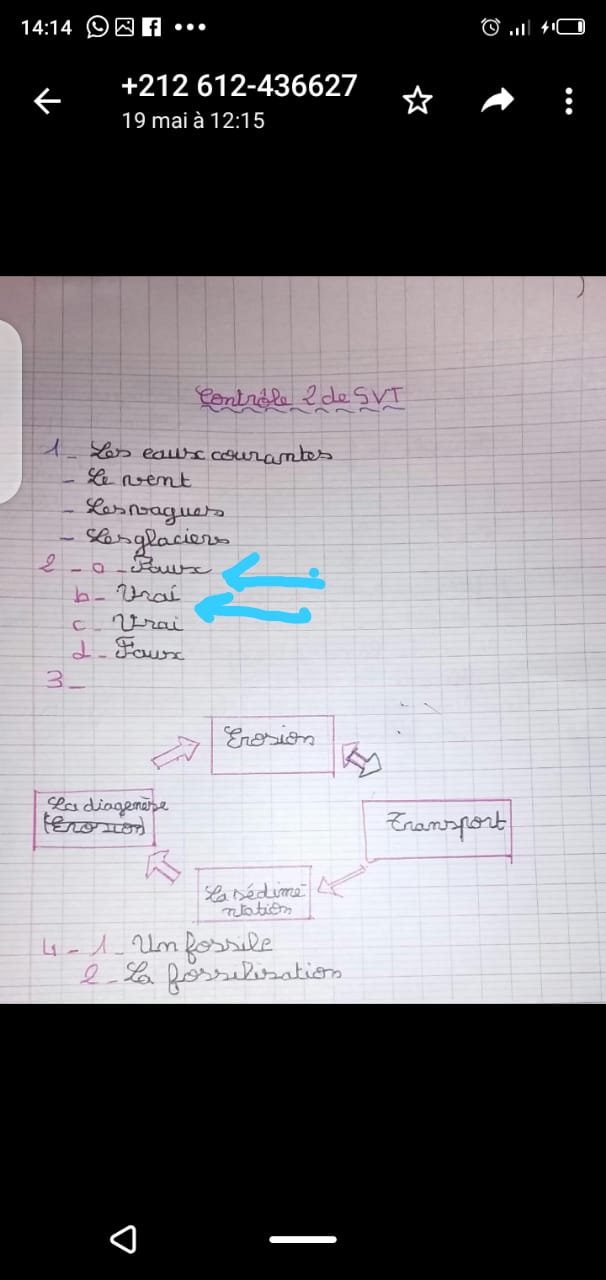 14:14
+212 612-436627
19 mai à 12:15
Contrôle 2 de SVT
1- Les eaux courantes
- Le vent
- Les vagues
- Les glaciers
2 - a - Faux
b - Vrai
c - Vrai
d - Faux
3 -
Erosion
La diagenèse
(Erosion)
Transport
La sédime
ntation
4 - 1 - Un fossile
2 - La fossilisation